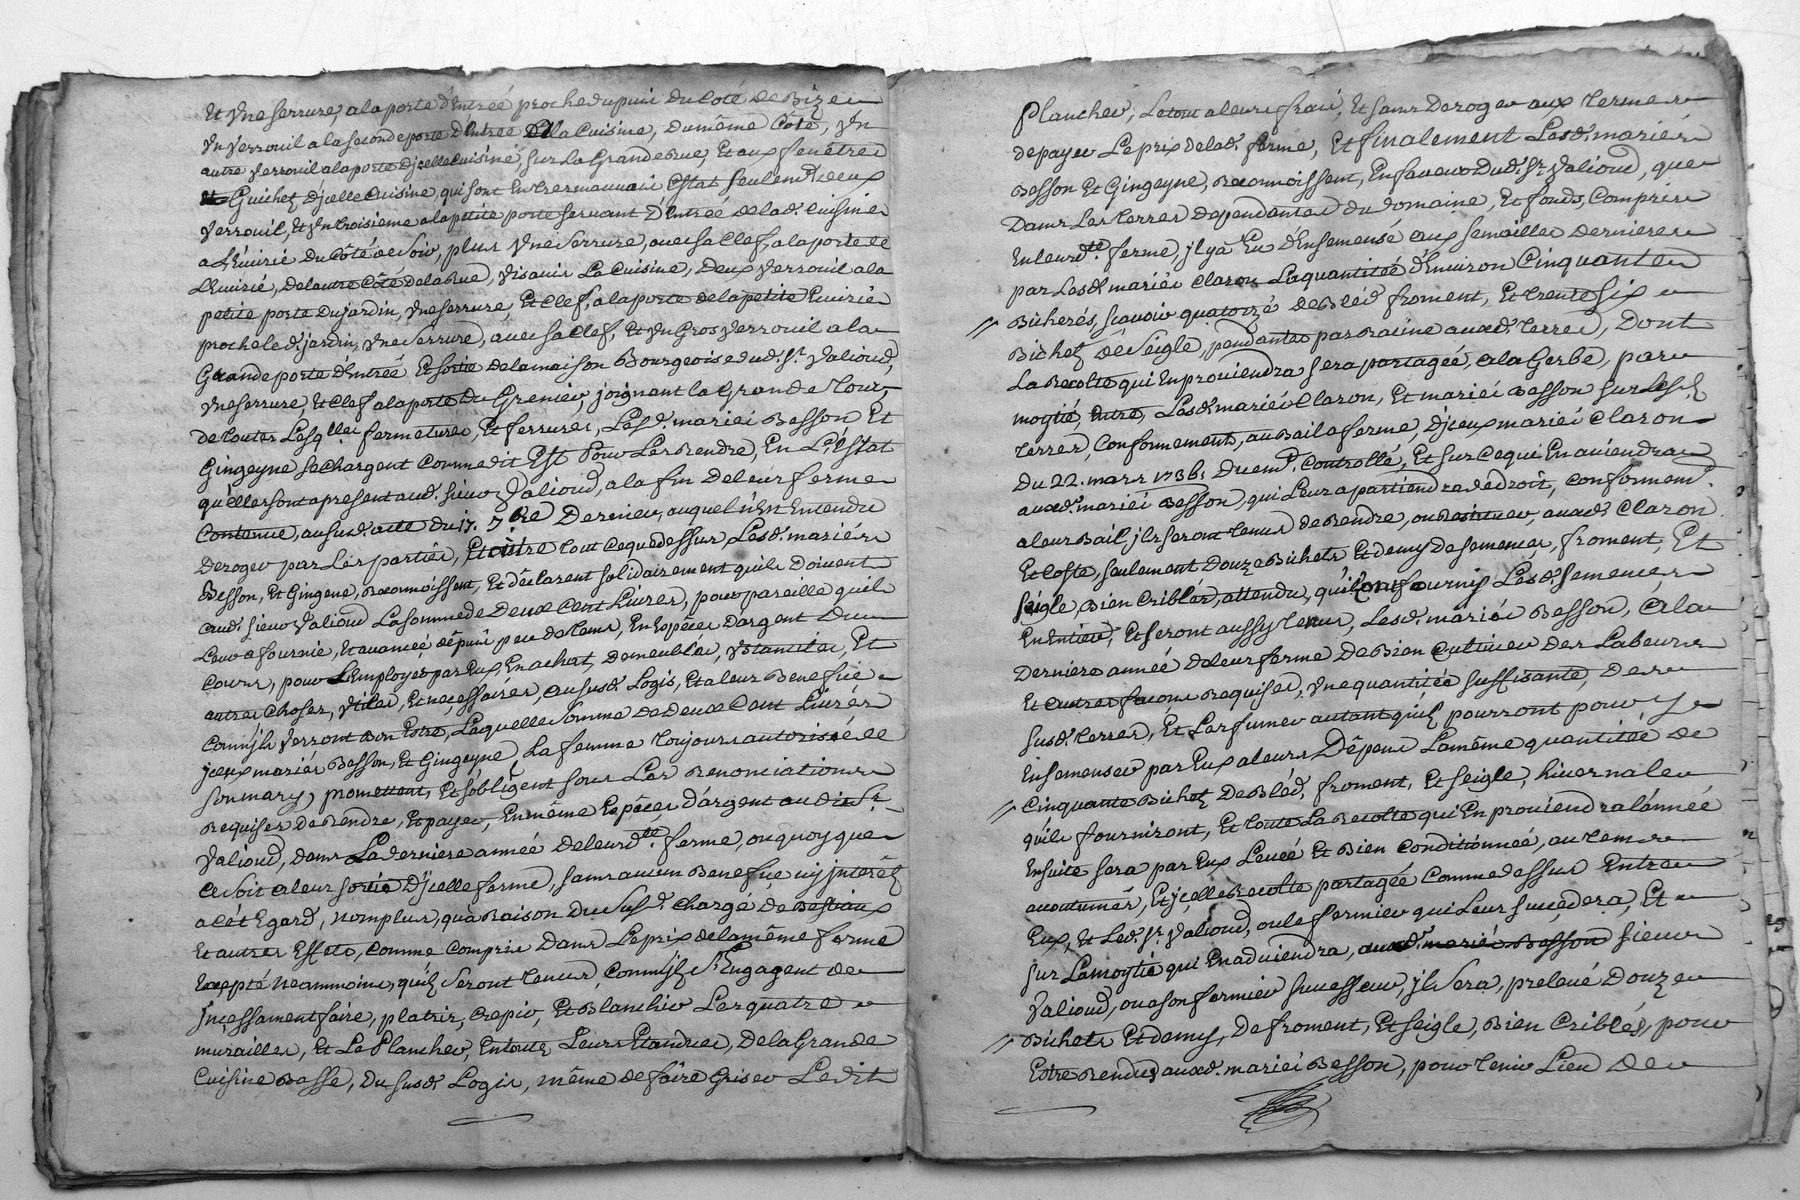 Et Une serrure, a la porte d'Entrée proche du puis du Coté de Bize
Un Verrouil a la seconde porte d'Entrée de la Cuisine, du même Côté, Un
autre Verrouil a la porte d'jcelle Cuisine, sur la Grande Rue, Et aux fenêtres
Guichet d'jcelle Cuisine, qui sont En tres mauvais Estat seulem.t deux
Verrouil, Et Un troisieme a la petite porte servant d'Entrée de lad. Cuisine
a L'Ecurie du Côté de Soir, plus Une Serrure, avec sa Clef, a la porte de
L'Ecurie, de l'autre Côté de la Rue, Visavis La Cuisine, Deux Verrouil a la
petite porte du jardin, Une serrure, Et Clef, a la porte de la petite Ecurie
proche led. jardin, Une Serrure, avec sa Clef, Et Un Gros Verrouil a la
Grande porte d'Entrée Et sortie de la maison Bourgeoise dud. S.r Valioud,
Une serrure, Et Clef a la porte du Grenier, joignant la Grande Tour,
de toutes Lesq.lles fermetures, Et ferrures, Lesd. mariés Besson Et
Gingeyne se Chargent Comme dit Est Pour Les Rendre, En L'Estat
qu'elles sont a present aud. sieur Valioud, a la fin de leur ferme
Contenue, au susd. acte du 17. 7bre Dernier, auquel n'Est Entendu
Deroger par Les parties, Et outre tout Ce que dessus, Lesd. mariés
Besson, Et Gingene, Reconnoissent, Et déclarent solidairement quils doivent
aud. sieur Valioud La somme de Deux Cent Livres, pour pareille quil
Leur a fournie, Et avancée dépuis peu de tems, En Espéces d'argent Du
Cours, pour L'Employer par Eux, En achept, de meubles, Ustancilles, Et
autres Choses, Utiles, Et necessaires, au susd. Logis, Et a leur Benefice
Comm'jls Verront Bon Estre, Laquelle Somme de Deux Cent Livres
jceux mariés Besson, Et Gingeyne, La femme toujours autorisée de
son mary, promettent, Et s'obligent sous Les Renonciations
Requises de Rendre, Et payer, En même Espéces d'argent au dit S.r
Valioud, dans La derniere année de leurd.te ferme, ou quoy que
Ce soit a leur sortie d'jcelle ferme, sans aucun Benefice nj jnterêt
a cét Egard, nomplus, qu'a Raison du Susd. chargé de Bestiaux
Et autres Effets, Comme Compris Dans Le prix de la même ferme
Excepté Neanmoins, quils Seront tenus, Comm'jls s'Engagent de
jncessament faire, platrir, Crepir, Et Blanchir Les quatre
murailles, Et Le Plancher, En toute Leurs Etendues, De la Grande
Cuisine Basse, du susd. Logis, même de faire Griser Ledit
Plancher, Le tout a leurs frais, Et sans Deroger aux termes
de payer Le prix de lad. ferme, Et finalement Lesd. mariés
Besson Et Gingeyne, Reconnoissent, En faveur Dud. S.r Valioud, que
Dans Les terres dependantes du Domaine, Et fonds, Compris
En leurd.te ferme, jl y a Eu d'Ensemensé aux semailles dernieres
par Lesd. mariés Claron La quantitée d'Environ Cinquante
Bicherés, scavoir quatorze de Bléd froment, Et trente six
Bichet de Seigle, pendantes par Racine auxd. terres, Dont
La Recolte qui En proviendra sera partagée, a la Gerbe, par
moytié, Entre, Lesd. mariés Claron, Et mariés Besson sur Lesd.
terres, Conformement, au Bail a ferme, d'jceux mariés Claron
Du 22. mars 1736, Duem.t Controllé, Et sur Ce qui En aviendra
auxd. mariés Besson, qui Leur apartiendra de droit, Conformem.t
a leur Bail, jls seront tenus de Rendre, ou Restituer, auxd. Claron
Et Coste, seulement Douze Bichets Et demy de semences, froment, Et
seigle, Bien Criblés, attendu, qu'ils ont fournis Lesd. semences
En Entier, Et seront aussy tenus, Lesd. mariés Besson, a la
Derniere année de leur ferme de Bien Cultiver Des Labeurs
Et autres facons Requises, Une quantitée suffisante, Des
susd. terres, Et Les fumer autant quils pourront pour y
Ensemenser par Eux a leurs Dépens La même quantitée de
Cinquante Bichet De Bléd, froment, Et seigle, hivernale
quils fourniront, Et toute La Recolte qui En proviendra l'année
Ensuite sera par Eux Levée Et Bien Conditionnée, au tems
accoutumés, Et jcelle Recolte partagée Comme dessus Entre
Eux, Et Led. S.r Valioud, ou le fermier qui Leur succedera, Et
sur La moytié qui En aduiendra, auxd. mariés Besson sieur
Valioud, ou a son fermier successeur, jl Sera, prelevé Douze
Bichets Et Demy, De froment, Et seigle, Bien Criblés, pour
Estre Rendus auxd. mariés Besson, pour tenir Lieu De